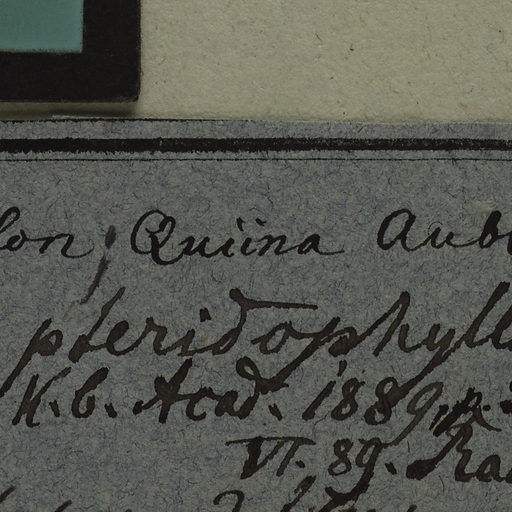 lon, Quiina Aubl
pteridophyll
K. b. Acad. 1889, p.
VI. 89. Rad